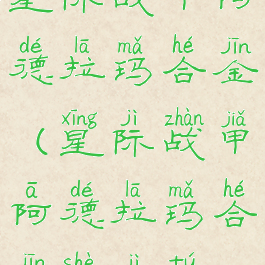 dé lā mǎ hé jīn
德拉玛合金
xīng jì zhàn jiǎ
（星际战甲
ā dé lā mǎ hé
阿德拉玛合
jīn shè jì tú